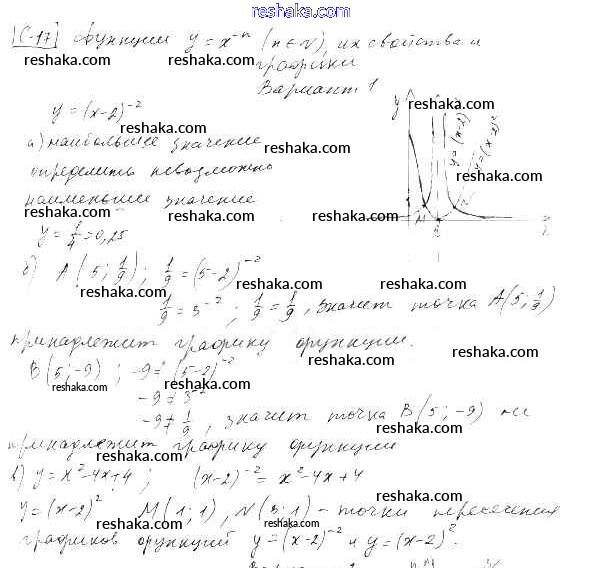 www.reshaka.com
С-17 Функции y = x⁻ⁿ (n∈N), их свойства и
reshaka.com reshaka.com reshaka.com
графики
Вариант 1
y = (x-2)⁻²
reshaka.com reshaka.com
а) наибольшее значение
reshaka.com reshaka.com
определить невозможно
наименьшее значение
reshaka.com reshaka.com
y = 1/4 = 0,25
reshaka.com
y
M
N
y = (x-2)
y = (x-2)²
б) A(5; 1/9); 1/9 = (5-2)⁻²
reshaka.com reshaka.com
1/9 = 3⁻²; 1/9 = 1/9, значит точка A(5; 1/9)
reshaka.com reshaka.com
принадлежит графику функции.
reshaka.com reshaka.com
B(5; -9); -9 ≠ (5-2)⁻²
reshaka.com
-9 ≠ 3⁻²
reshaka.com
-9 ≠ 1/9, значит точка B(5; -9) не
reshaka.com
принадлежит графику функции
reshaka.com reshaka.com
в) y = x²-4x+4; (x-2)⁻² = x²-4x+4
reshaka.com reshaka.com
y = (x-2)² M(1; 1), N(3; 1) - точки пересечения
reshaka.com reshaka.com reshaka.com
графиков функций y = (x-2)⁻² и y = (x-2)².
reshaka.com reshaka.com